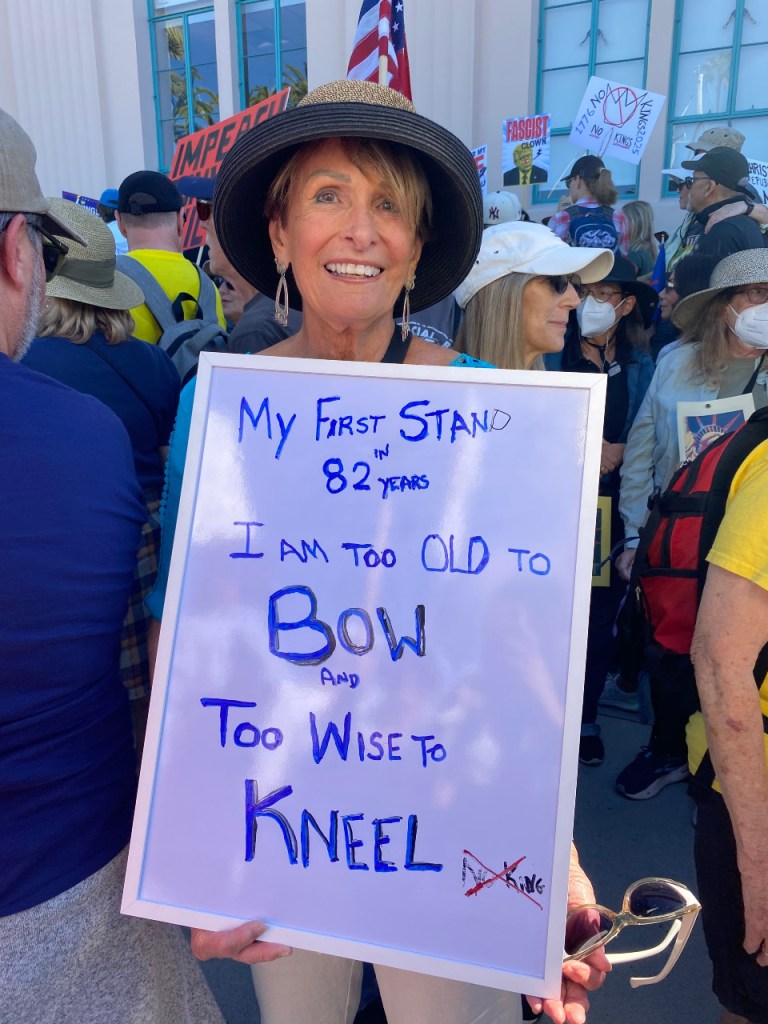 My First Stand
in
82 years
I am too old to
Bow
and
Too Wise to
Kneel
No King
IMPE
FASCIST
CLOWN
1776 NO KINGS 2025
NO KINGS